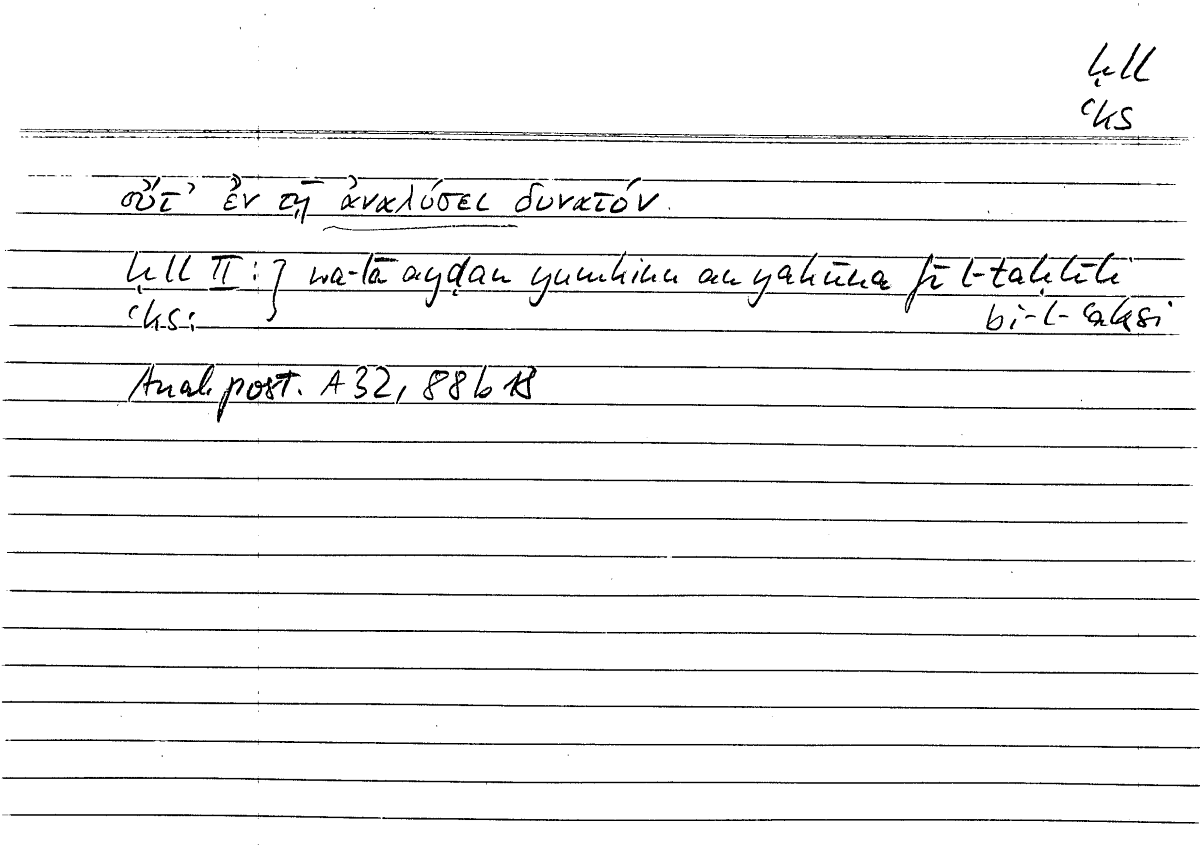 ḥll
ʿks
οὔτ᾽ ἐν τῇ ἀναλύσει δυνατόν.
ḥll II : } wa-lā ayḍan yumkinu an yakūna fī l-taḥlīli
ʿks : bi-l-ʿaksi
Anal. post. A 32, 88 b 18